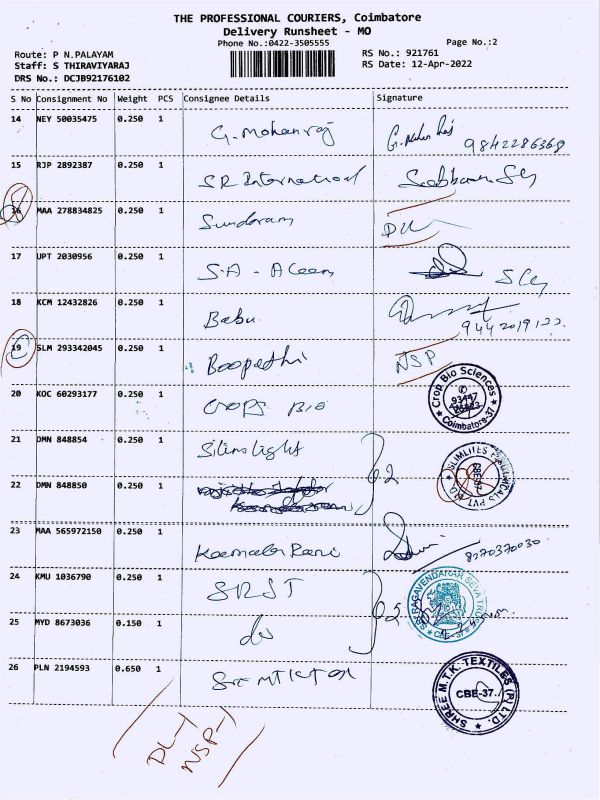 THE PROFESSIONAL COURIERS, Coimbatore
Delivery Runsheet - MO
Phone No.:0422-3505555
Page No.:2
Route: P N.PALAYAM
RS No.: 921761
Staff: S THIRAVIYARAJ
RS Date: 12-Apr-2022
DRS No.: DCJB92176102
S No Consignment No Weight PCS Consignee Details Signature
14 NEY 50035475 0.250 1 G. Mohanraj 9842286368
15 RJP 2892387 0.250 1 SR International
16 MAA 278834825 0.250 1 Sundaram DL
17 UPT 2030956 0.250 1 S.A -
18 KCM 12432826 0.250 1 Babu
19 SLM 293342045 0.250 1 Boopathi NSP
20 KOC 60293177 0.250 1 CROPS BIO Crop Bio Sciences 93447 Coimbatore-37
21 DMN 848854 0.250 1 Slimlight
22 DMN 848850 0.250 1 2 SLIMLITES PVT LTD. CBE-37
23 MAA 565972150 0.250 1 Rani 8270370030
24 KMU 1036790 0.250 1 SRST
25 MYD 8673036 0.150 1 do SRI RAGAVENDARAR SEVA TRUST CBE-37
26 PLN 2194593 0.650 1 SHREE M.T.K. TEXTILES (P) LTD. CBE-37.
DL-1
NSP-1